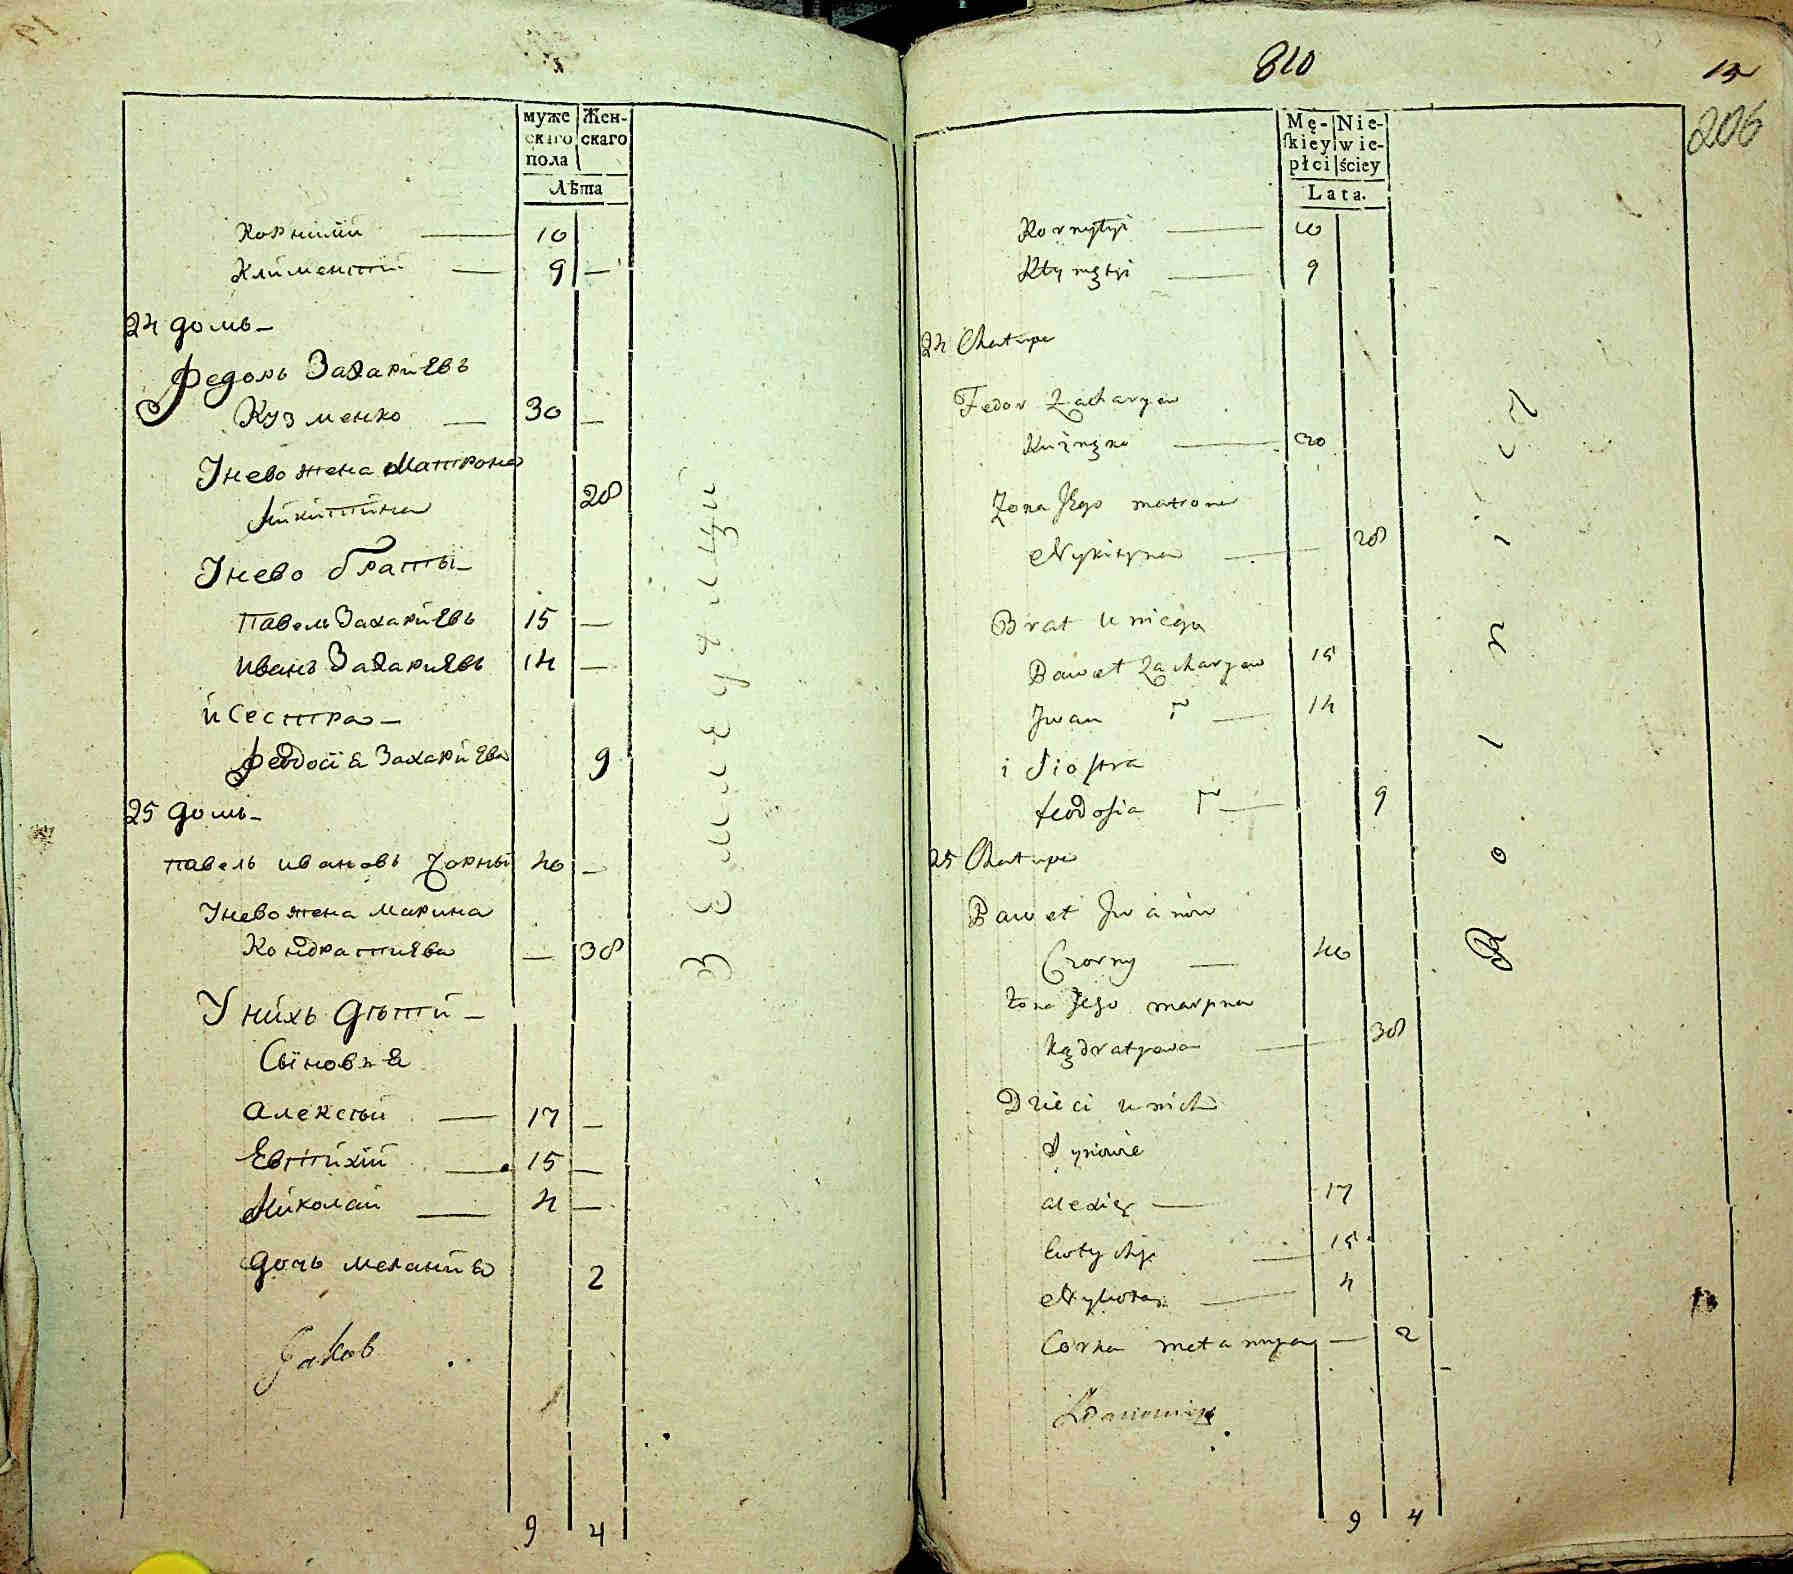 муже
скаго
пола
Жен-
скаго
Лѣта
Корнилий 10
Климентий 9 —
24 домъ
Федоръ Захариевъ
Кузменко — 30 —
У нево жена Матрона
Микитина 28
У нево браты
Павелъ Захариевъ 15 —
Иванъ Захариевъ 14 —
и сестра
Феодосия Захариева 9
25 домъ
Павелъ Ивановъ Чорный 40 —
У нево жена Марина
Кондратиева — 38
У нихъ дѣти
Сыновья
Алексѣй — 17 —
Евтихий — 15 —
Николай — 4 —
дочь Мелания 2
Jakob
9 4
810
13
206
Mę-
skiey
płci
Nie-
wie-
ściey
Lata.
10
9
24 Chałupa
Fedor Zacharyew
30
Zona Jego Matrona
Mykityna — 28
Brat u niego
Paweł Zacharyew 15
Jwan — 14
i Siostra
Feodosia — 9
25 Chałupa
Paweł Jwanow
Czorny — 40
Zona Jego Maryna
Kądratyewa — 38
Dzieci u nich
Synowie
Alexiey — 17
Ewtychy — 15
Mykołay — 4
Corka Melanya — 2
9 4
Rolnicy